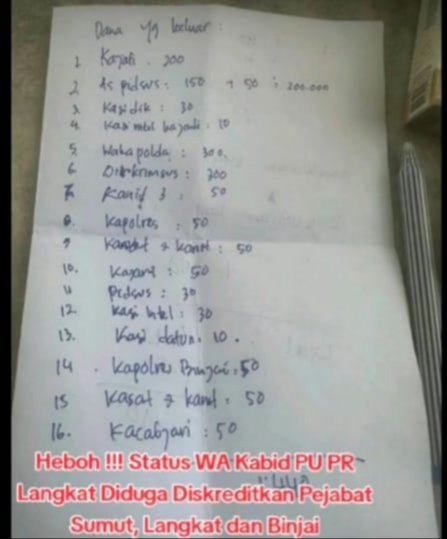 Dana yg keluar :
1. Kajati . 200
2. As pidsus : 150 + 50 : 200.000
3. Kasidik : 30
4. Kasi intel kajati : 10
5. Wakapolda : 300.
6. Dirkrimsus : 300
7. Kanit 3 : 50
8. Kapolres : 50
9 Kasat & kanit : 50
10. Kajari : 50
11 Pidsus : 30
12. Kasi Intel : 30
13. Kasi datun. 10 .
14 . Kapolres Binjai : 50
15 Kasat & kanit : 50
16. Kacabjari : 50
Heboh !!! Status WA Kabid PU PR
Langkat Diduga Diskreditkan Pejabat
Sumut, Langkat dan Binjai